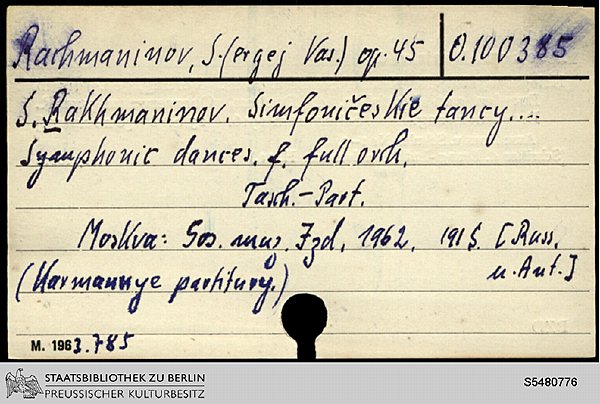 Rachmaninov, S.(ergej Vas.) op. 45 O.100385
S. Rakhmaninov. Simfoničeskie tancy....
Symphonic dances. f. full orch.
Tasch.-Part.
Moskva: Gos. muz. Izd. 1962. 191 S. [Russ.
(Karmannye partitury.) u. Ant.]
M. 1963.785
STAATSBIBLIOTHEK ZU BERLIN
PREUSSISCHER KULTURBESITZ
S5480776